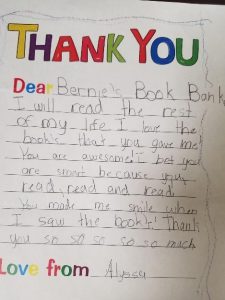 THANK YOU
Dear Bernie's Book Bank
I will read the rest
of my life I love the
book's that you gave me
You are awesome! I bet you
are smart because you
read, read and read.
You made me smile when
I saw the book's! Thank
you so so so so so much
Love from Alyssa